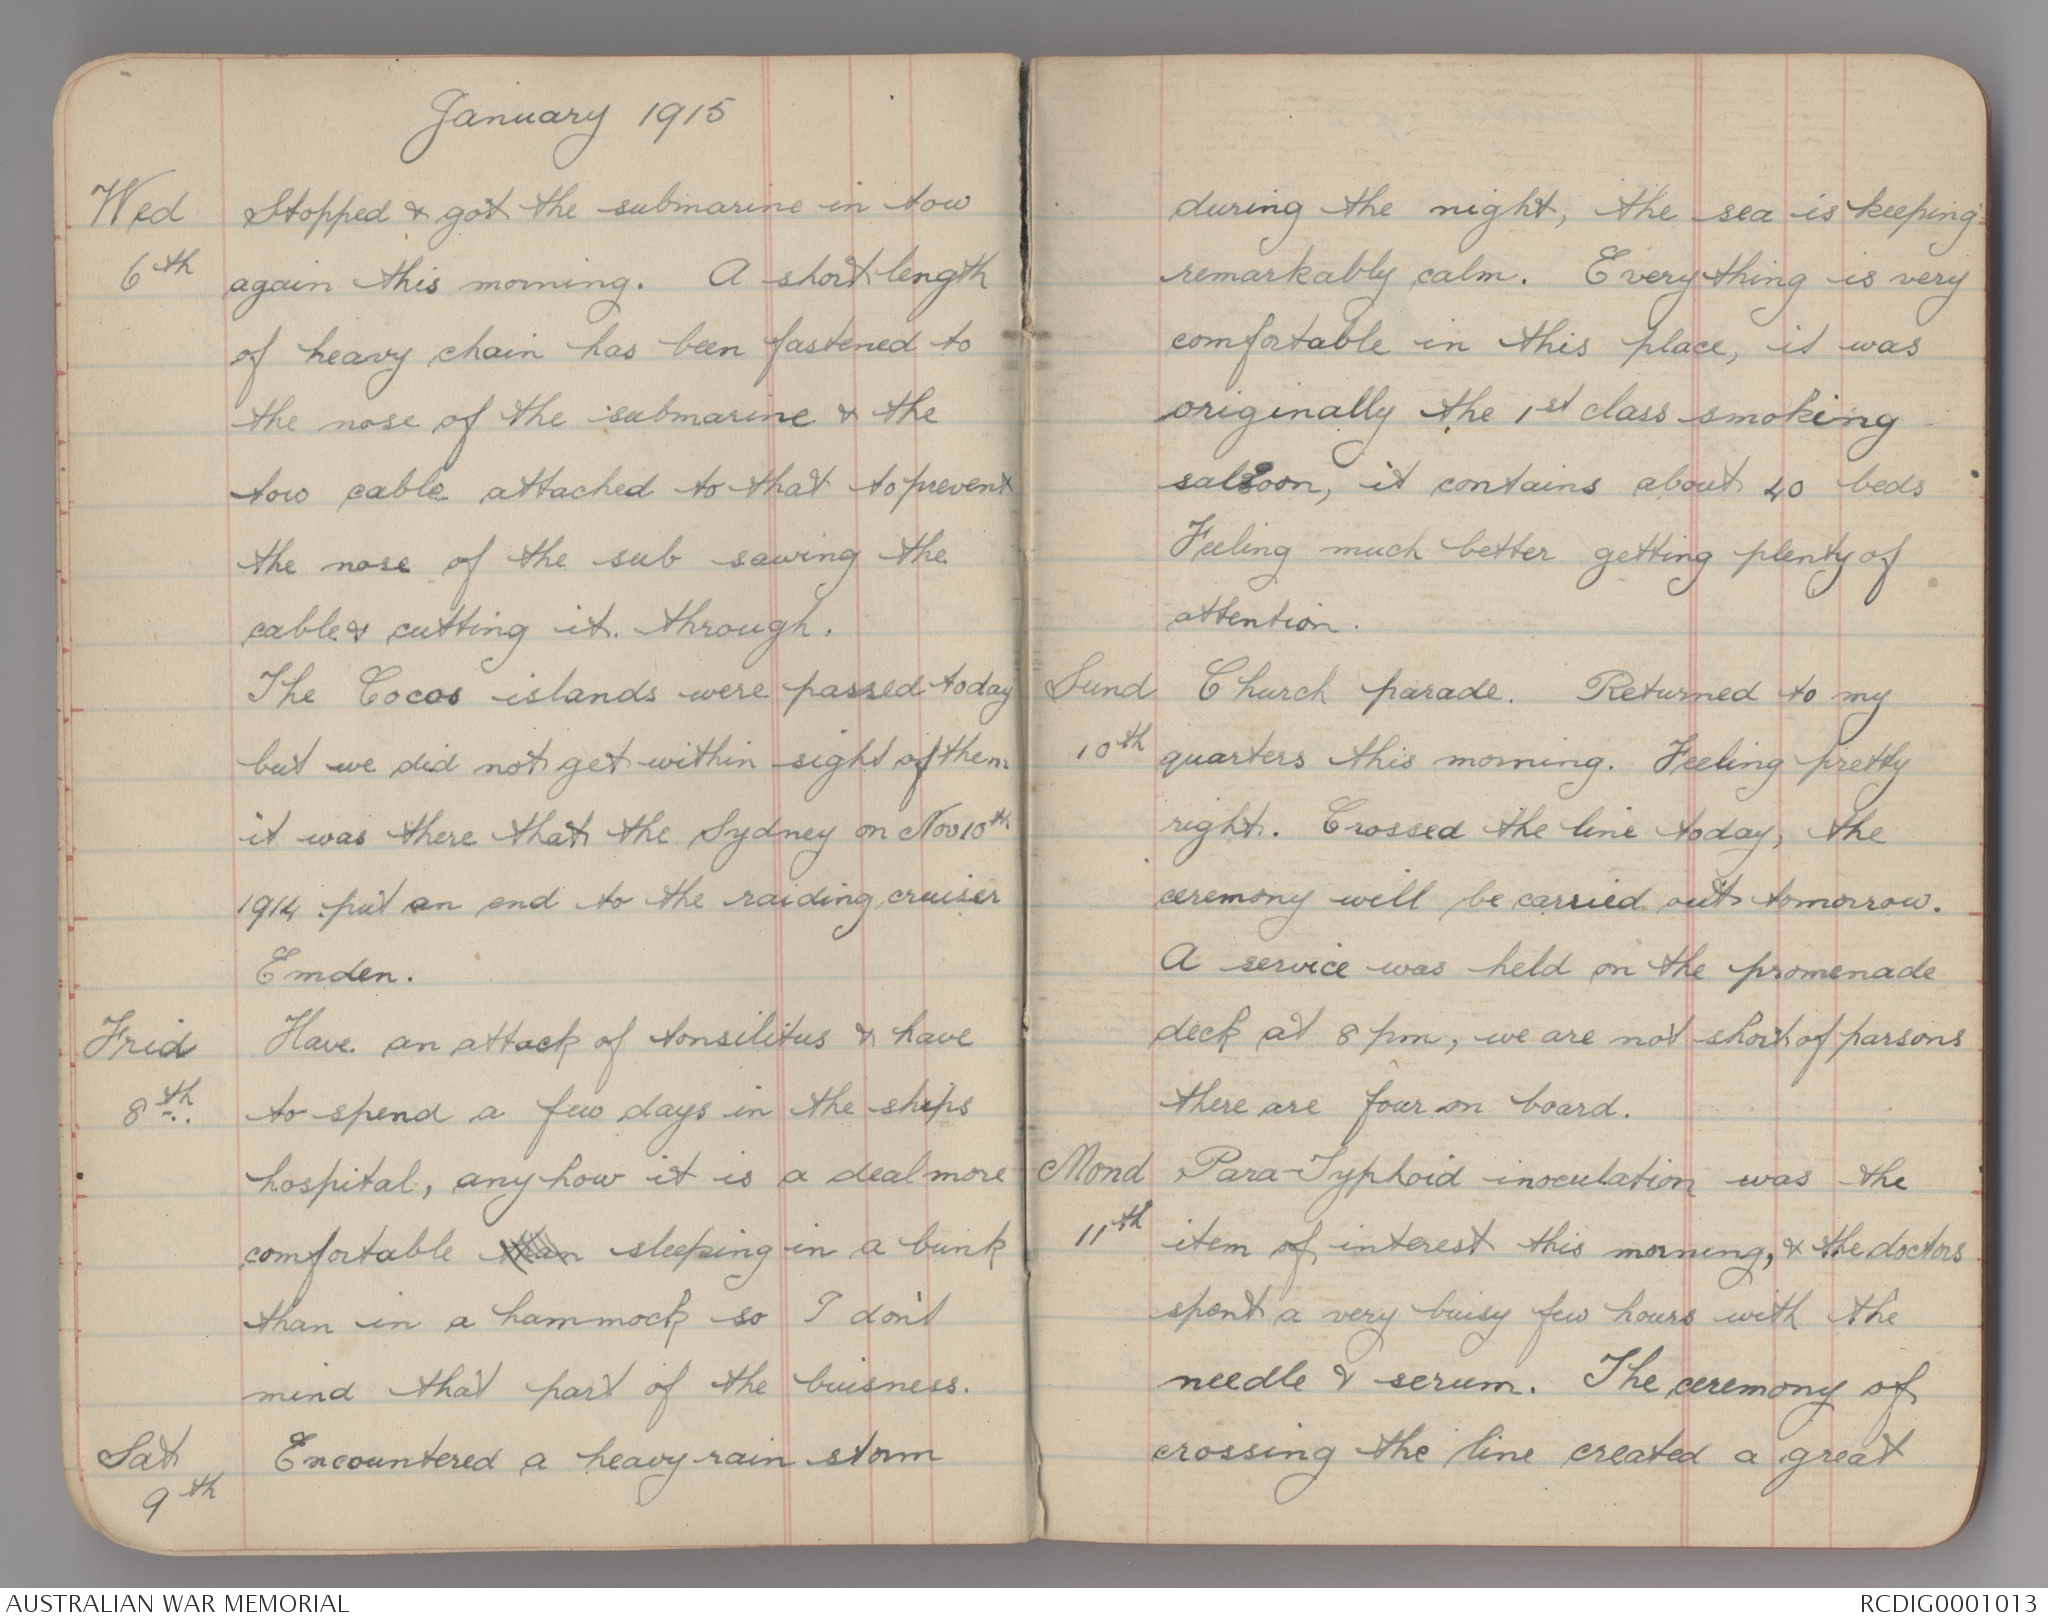 January 1915
Wed Stopped & got the submarine in tow
6th again this morning. A short length
of heavy chain has been fastened to
the nose of the submarine & the
tow cable attached to that to prevent
the nose of the sub sawing the
cable & cutting it through.
The Cocos islands were passed today
but we did not get within sight of them
it was there that the Sydney on Nov 10th
1914 put an end to the raiding cruiser
Emden.
Frid Have an attack of tonsilitus & have
8th to spend a few days in the ships
hospital, anyhow it is a deal more
comfortable than sleeping in a bunk
than in a hammock so I don't
mind that part of the buisness.
Sat Encountered a heavy rain storm
9th
during the night, the sea is keeping
remarkably calm. Everything is very
comfortable in this place, it was
originally the 1st class smoking
saloon, it contains about 40 beds
Feeling much better getting plenty of
attention.
Sund Church parade. Returned to my
10th quarters this morning. Feeling pretty
right. Crossed the line today, the
ceremony will be carried out tomorrow.
A service was held on the promenade
deck at 8 pm, we are not short of parsons
there are four on board.
Mond Para-Typhoid inoculation was the
11th item of interest this morning, & the doctors
spent a very buisy few hours with the
needle & serum. The ceremony of
crossing the line created a great
AUSTRALIAN WAR MEMORIAL
RCDIG0001013